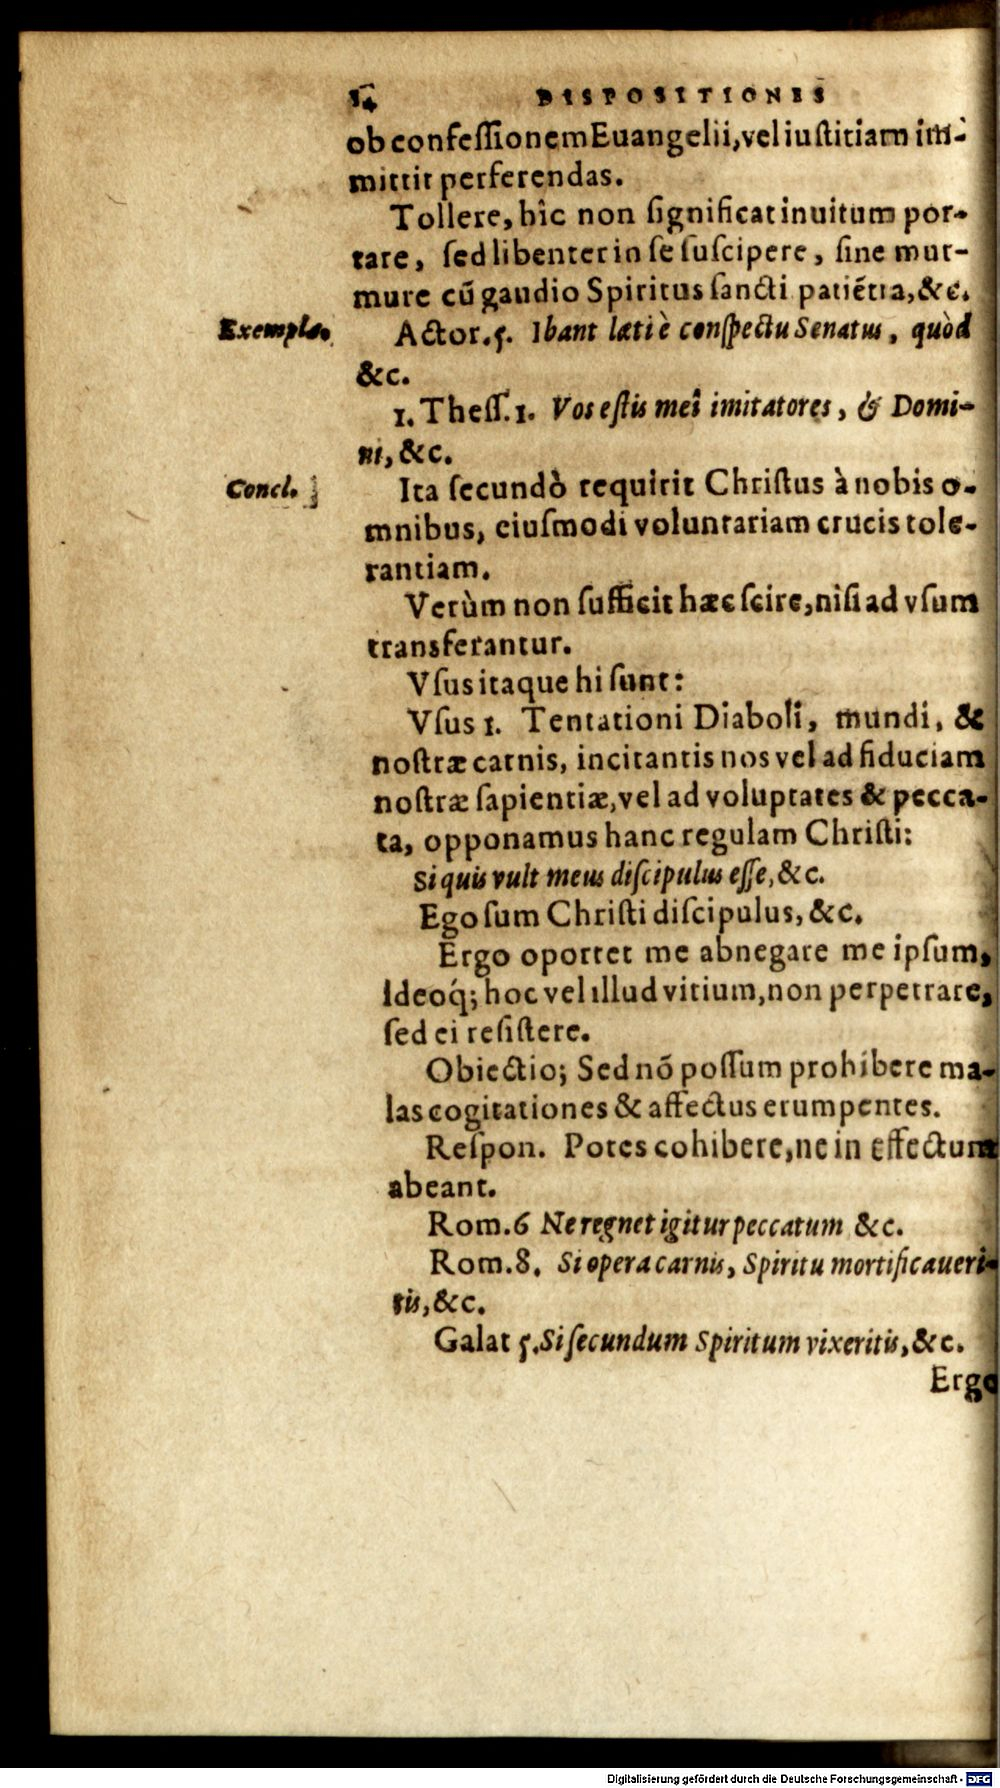 14 DISPOSITIONES
ob confeſſionem Euangelii, vel iuſtitiam im-
mittit perferendas.
Tollere, hîc non ſignificat inuitum por-
tare, ſed libenter in ſe ſuſcipere, ſine mur-
mure cū gaudio Spiritus ſancti patiētia, &c.
Exempla.
Actor. 5. Ibant læti è conſpectu Senatus, quòd
&c.
1. Theſſ. 1. Vos eſtis mei imitatores, & Domi-
ni, &c.
Concl.
Ita ſecundò requirit Chriſtus à nobis o-
mnibus, eiuſmodi voluntariam crucis tole-
rantiam.
Verùm non ſufficit hæc ſcire, niſi ad vſum
transferantur.
Vſus itaque hi ſunt:
Vſus 1. Tentationi Diaboli, mundi, &
noſtræ carnis, incitantis nos vel ad fiduciam
noſtræ ſapientiæ, vel ad voluptates & pecca-
ta, opponamus hanc regulam Chriſti:
Si quis vult meus diſcipulus eſſe, &c.
Ego ſum Chriſti diſcipulus, &c.
Ergo oportet me abnegare me ipſum,
Ideoq́; hoc vel illud vitium, non perpetrare,
ſed ei reſiſtere.
Obiectio; Sed nō poſſum prohibere ma-
las cogitationes & affectus erumpentes.
Reſpon. Potes cohibere, ne in effectum
abeant.
Rom. 6 Ne regnet igitur peccatum &c.
Rom. 8. Si opera carnis, Spiritu mortificaueri-
tis, &c.
Galat 5. Si ſecundum Spiritum vixeritis, &c.
Ergo
Digitalisierung gefördert durch die Deutsche Forschungsgemeinschaft - DFG